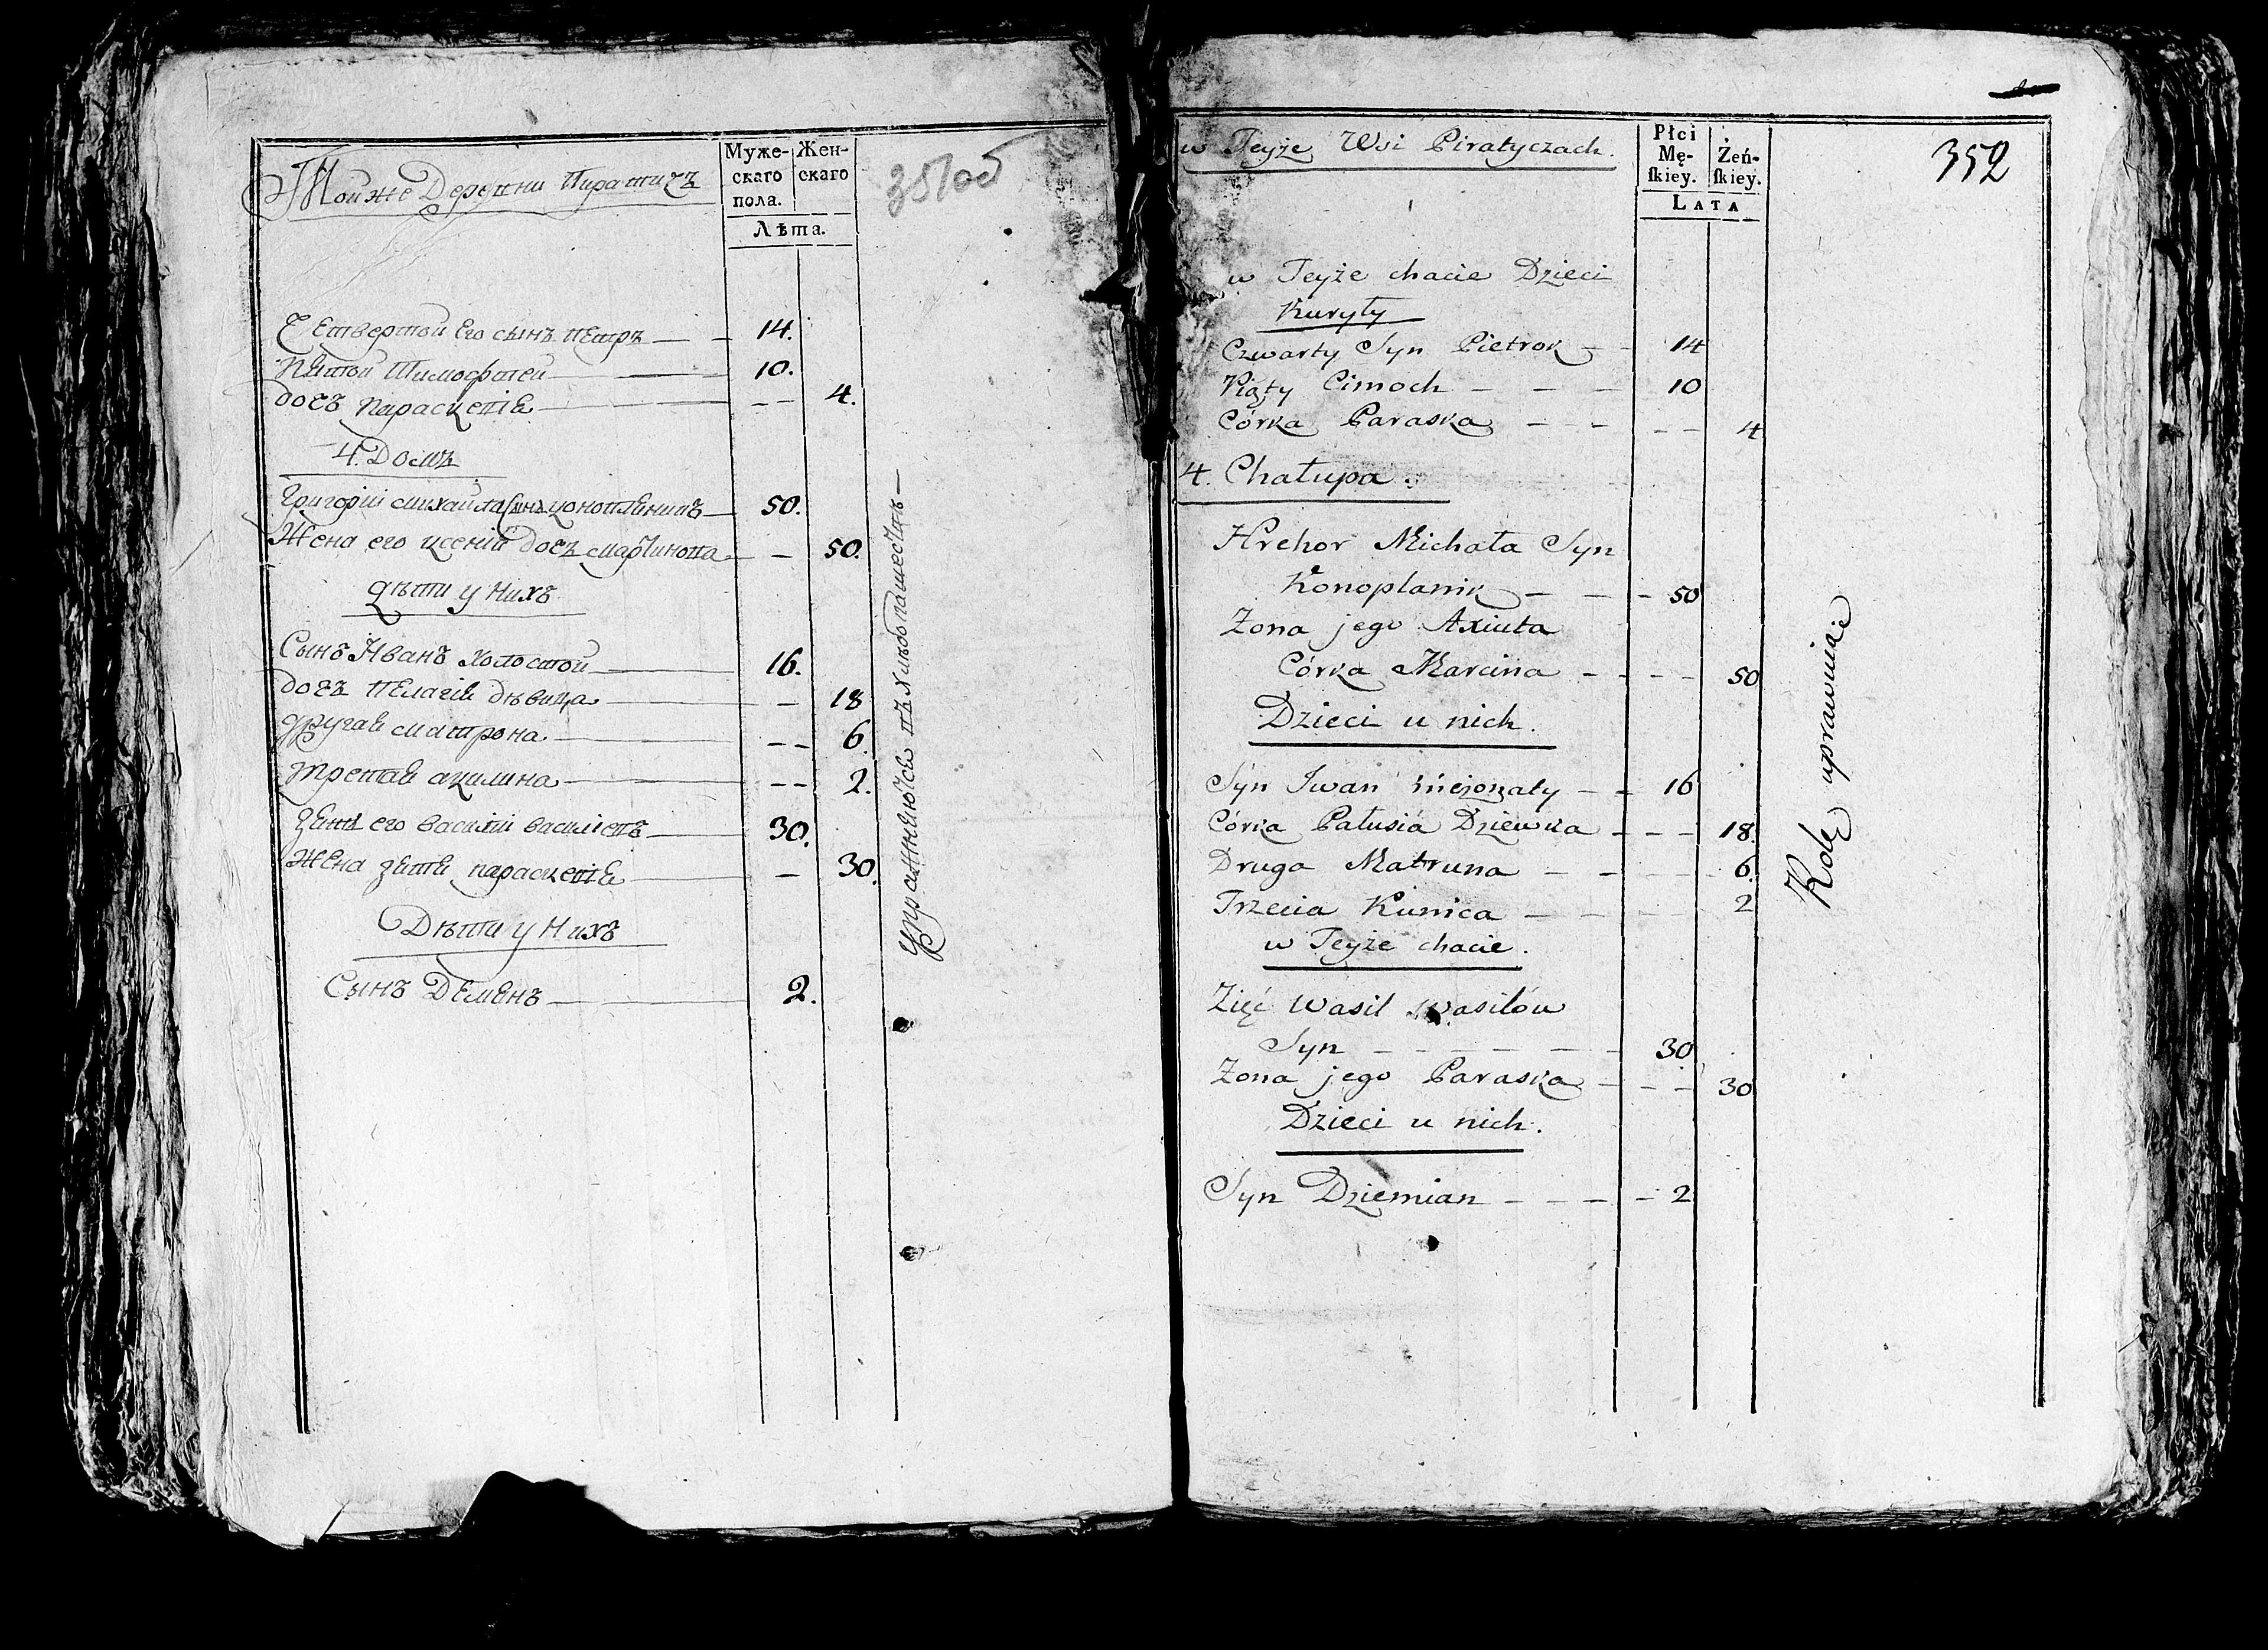 Тойже Деревни Пиратичъ
Муже-
скаго
пола.
Жен-
скаго
Лѣта.
351об
Четвертой его сынъ Петръ — 14.
Пятой Тимофтей — 10.
дочъ Параскевія — 4.
4. Домъ
Григорій михайла сынъ коноплянникъ — 50.
Жена его ксенія дочъ марчинова — 50.
дѣти у нихъ
Сынъ Иванъ холостой — 16.
дочъ пелагія дѣвица — 18
другая матрона — 6.
третая акилина — 2.
зять его василій василіевъ — 30.
Жена зятя параскевія — 30.
Дѣти у нихъ
Сынъ Демянъ — 2.
упражняются въ хлѣбопашествѣ —
w Teyże Wsi Piratyczach.
Płci
Mę-
skiey.
Żeń-
skiey.
LATA
352
w Teyże chacie Dzieci
Kuryły
Czwarty Syn Pietrok — 14
Piąty Cimoch — 10
Córka Paraska — 4
4. Chałupa.
Hrehor Michała Syn
Konoplanik — 50
Żona jego Axiuta
Córka Marcina — 50
Dzieci u nich.
Syn Iwan nieżonaty — 16
Córka Pałusia Dziewka — 18.
Druga Matruna — 6.
Trzecia Kunica — 2
w Teyże chacie.
Zięć Wasil Wasilów
Syn — 30.
Żona jego Paraska — 30
Dzieci u nich.
Syn Dziemian — 2
Rolę uprawuiąc